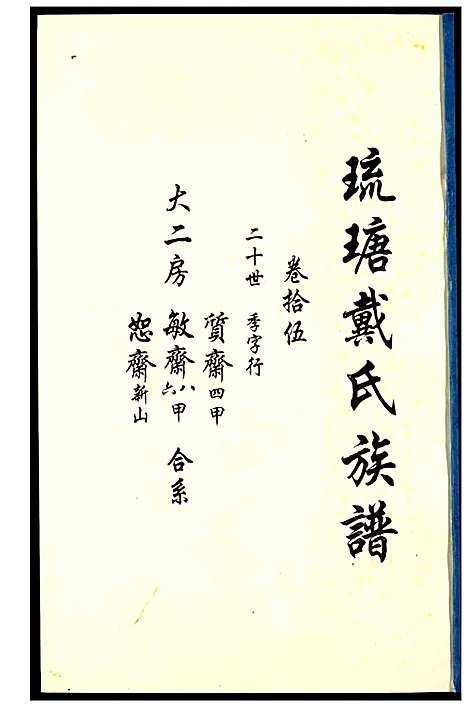 琉瑭戴氏族譜
卷拾伍
二十世 季字行
質齋四甲
大二房 敏齋八六甲 合系
恕齋新山